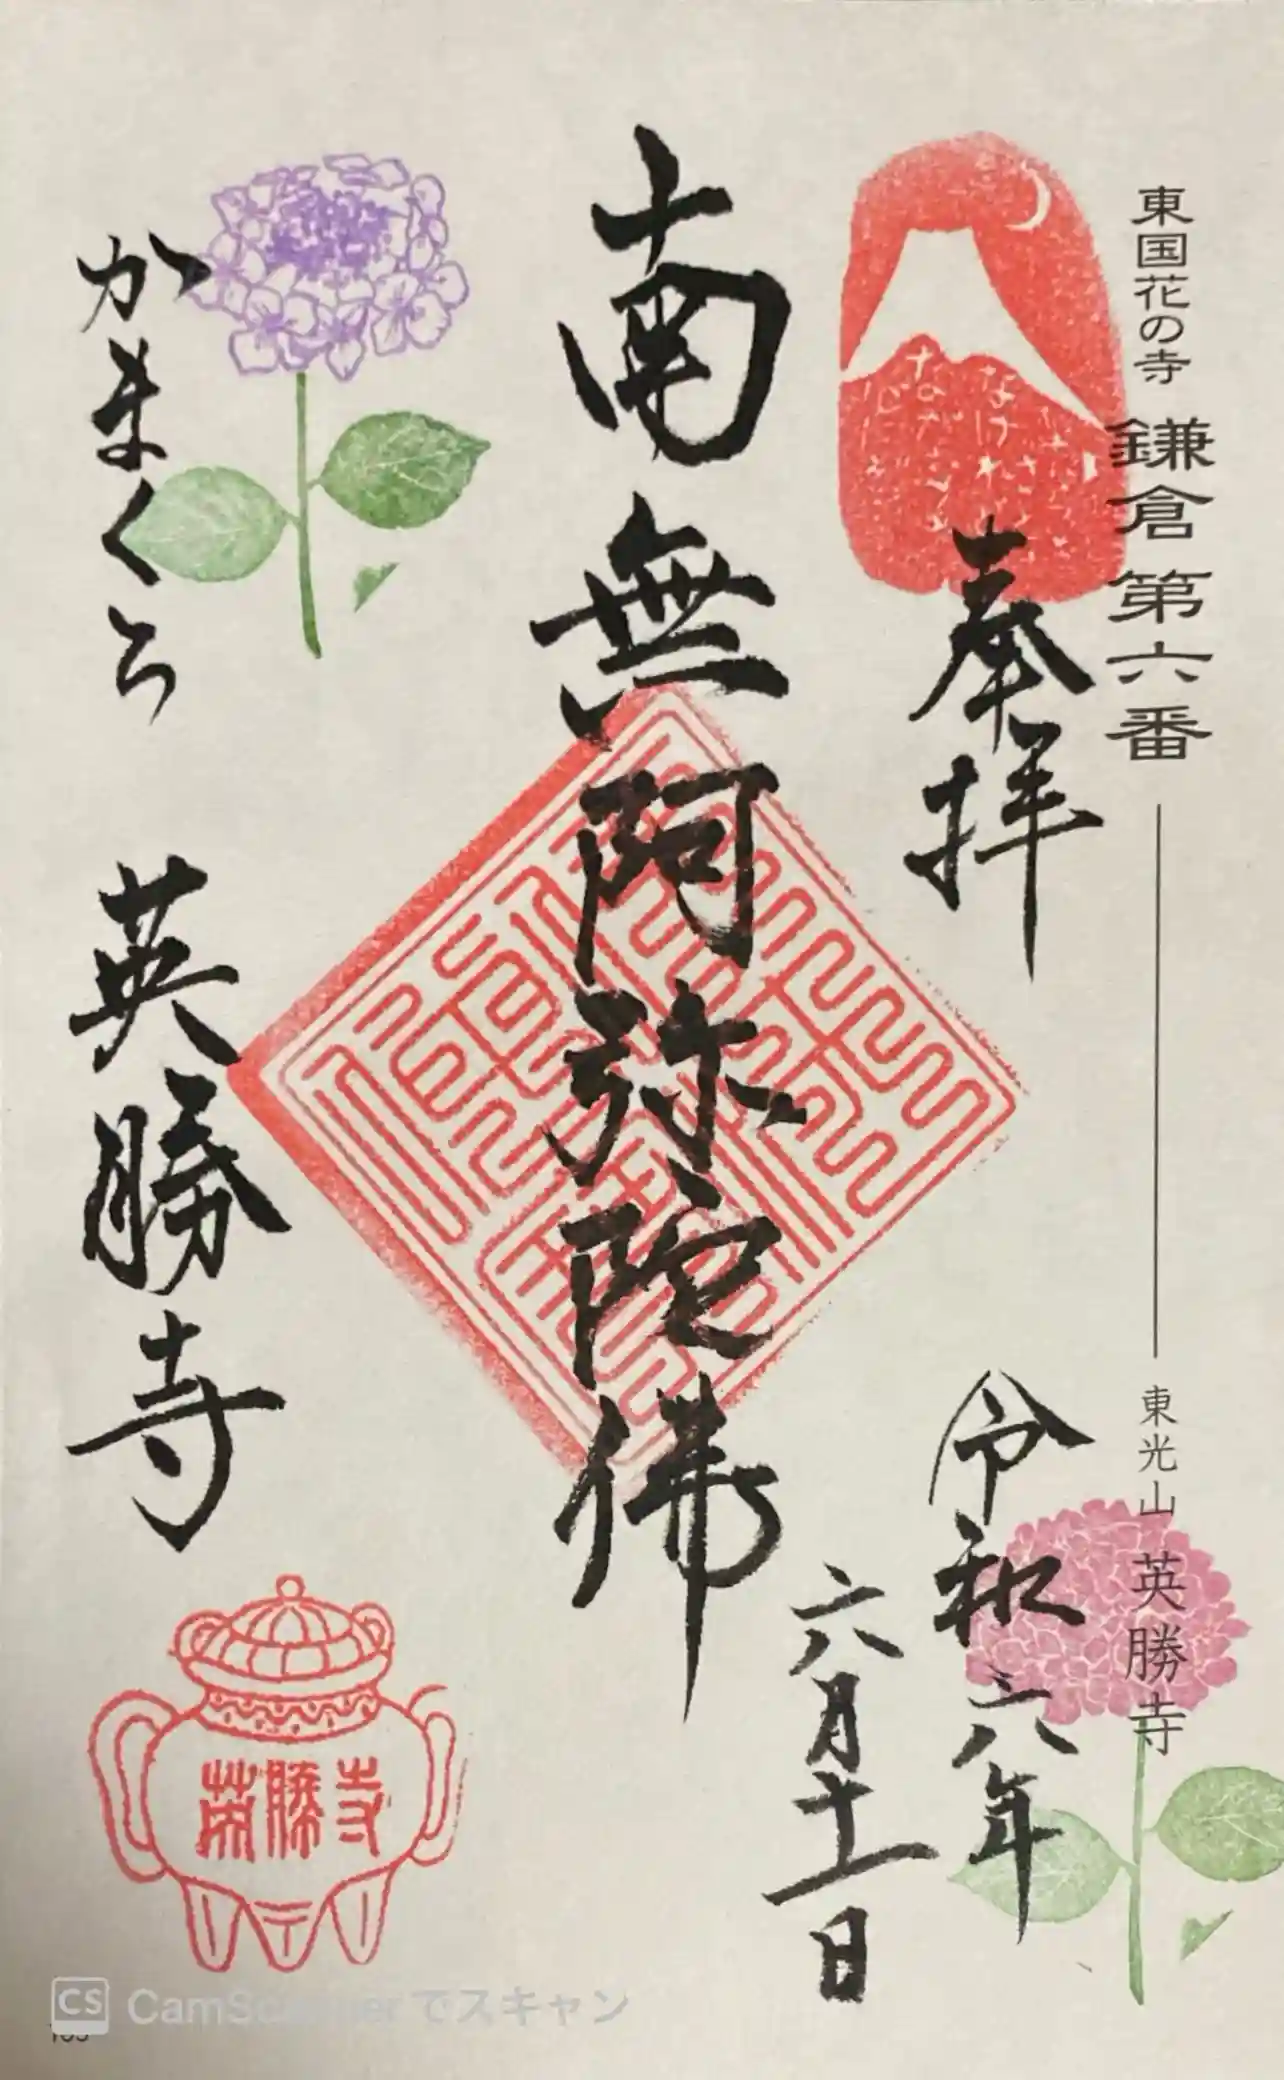 東国花の寺 鎌倉 第六番
東光山 英勝寺
奉拝
令和六年
六月十一日
南無阿弥陀佛
かまくら 英勝寺
英勝寺
CS CamScanner でスキャン